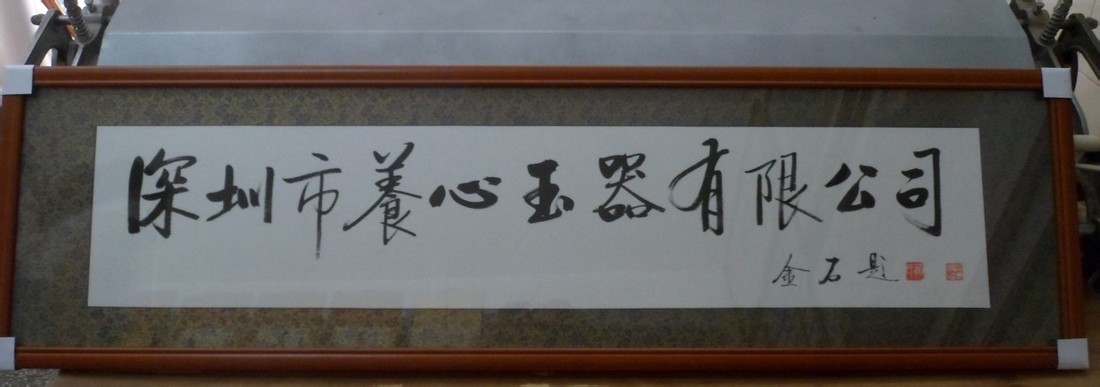 深圳市養心玉器有限公司
金石题